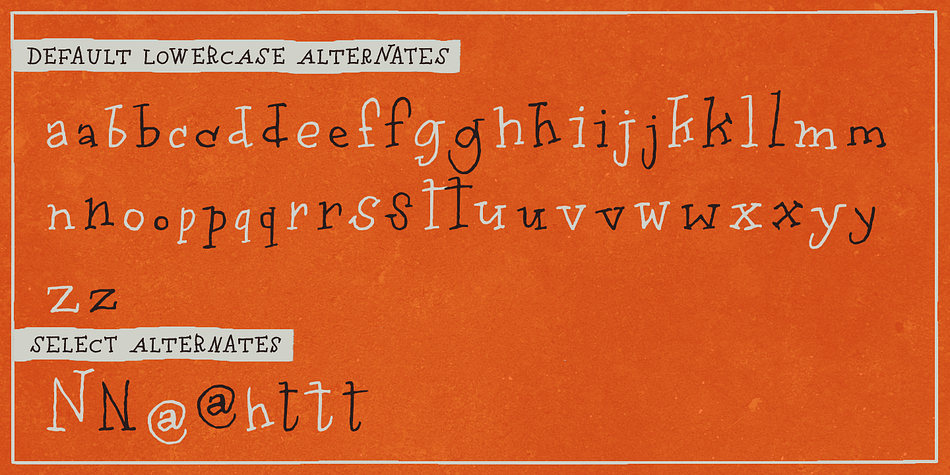 DEFAULT LOWERCASE ALTERNATES
aabbccddeeffgghhiijjkkllmm
nnooppqqrrssttuuvvwwxxyy
zz
SELECT ALTERNATES
NN@@httt